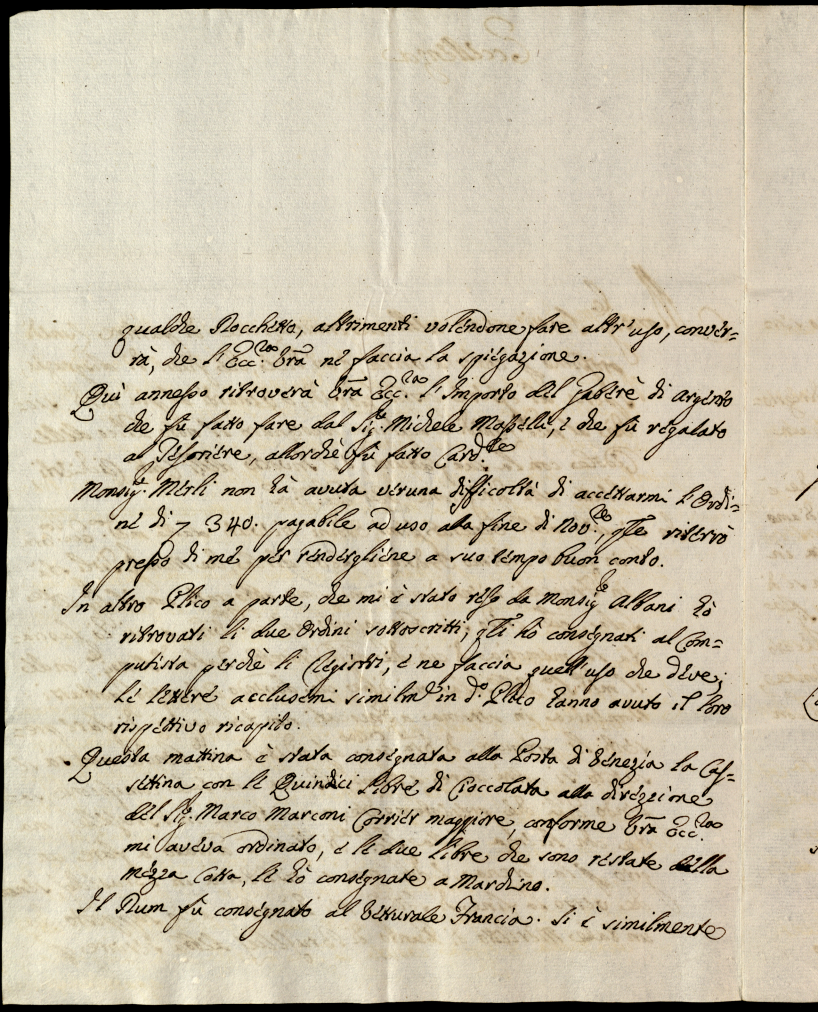 qualche Rocchetto, altrimenti volendone fare altr'uso, conver=
rà, che l'Ecc.za Vra ne faccia la spiegazione.
Qui annesso ritroverà Vra Ecc.za l'Importo del Gaberè di argento
che fù fatto fare dal Sig.re Michele Masselli, è che fù regalato
a Tesoriere, allorchè fù fatto Card.le
Monsig.r Merli non hà avuta veruna difficoltà di accettarmi l'Ordi=
ne di 340. pagabile ad uso alla fine di Nov.re, qle riterrò
presso di me per rendergliene a suo tempo buon conto.
In altro Plico a parte, che mi è stato reso da Monsig.re Albani hò
ritrovati li due Ordini sottoscritti, qli hò consegnati al Com=
putista perchè li Registri, è ne faccia quell'uso che deve;
Le lettere acclusemi similm.e in d.o Plico hanno avuto il loro
rispettivo ricapito.
Questa mattina è stata consegnata alla Posta di Venezia la Cas=
settina con le Quindici libre di Cioccolata alla direzione
del Sig.r Marco Marconi Corrier maggiore, conforme Vra Ecc.za
mi aveva ordinato, è le due libre che sono restate della
mezza Cotta, le hò consegnate a Marchino.
Il Rum fù consegnato al Vetturale Francia. Si è similmente